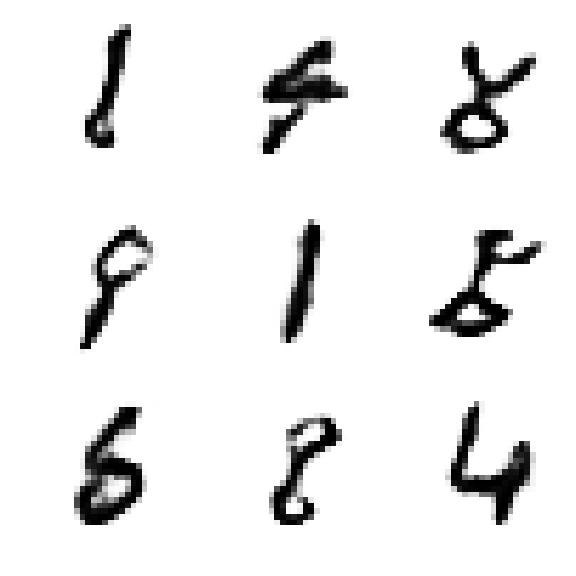 1 4 8
9 1 8
8 8 4